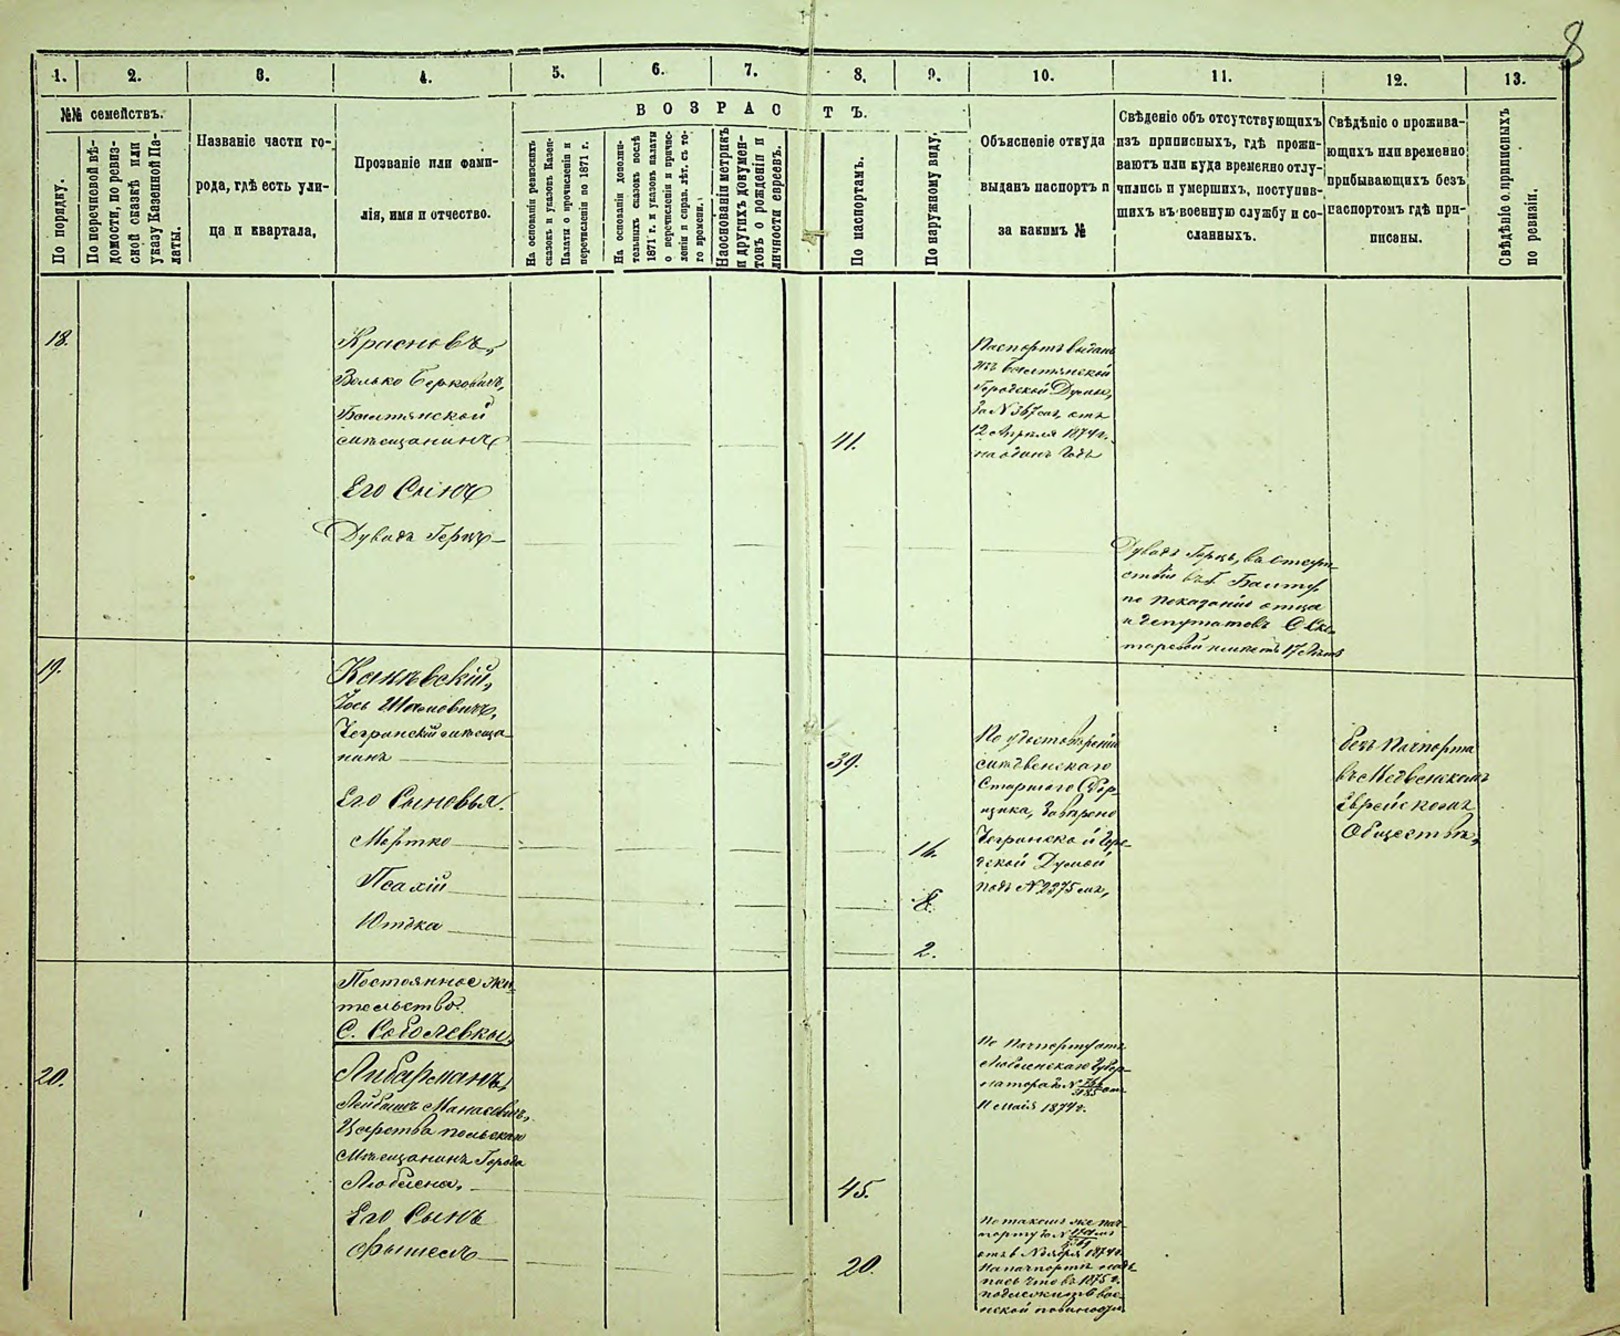 8
1. 2. 3. 4. 5. 6. 7. 8. 9. 10. 11. 12. 13.
№№ семействъ.
По порядку.
По перечневой вѣ-
домости, по ревиз-
ской сказкѣ или
указу Казенной Па-
латы.
Названіе части го-
рода, гдѣ есть ули-
ца и квартала,
Прозваніе или фами-
лія, имя и отчество.
ВОЗРАСТЪ.
На основаніи ревизскихъ
сказокъ и указовъ Казен.
Палаты о причисленіи и
перечисленіи по 1871 г.
На основаніи дополни-
тельныхъ сказокъ послѣ
1871 г. и указовъ палаты
о перечисленіи и причис-
леніи и справ. лѣт. съ то-
го времени.
На основаніи метрикъ
и другихъ докумен-
товъ о рожденіи и
личности евреевъ.
По паспортамъ.
По наружному виду.
Объясненіе откуда
выданъ паспортъ и
за какимъ №
Свѣденіе объ отсутствующихъ
изъ приписныхъ, гдѣ прожи-
ваютъ или куда временно отлу-
чились и умершихъ, поступив-
шихъ въ военную службу и со-
сланныхъ.
Свѣдѣніе о прожива-
ющихъ или временно
прибывающихъ безъ
паспортомъ гдѣ при-
писаны.
Свѣдѣніе о приписныхъ
по ревизіи.
18.
Красновъ,
Волько Берковичъ,
Балтянской
мѣщанинъ
41.
Паспортъ выданъ
изъ Балтянской
Городской Думы,
за № 367мъ, отъ
12 Апрѣля 1874 г.
на одинъ годъ
Его Сынъ
Дувадъ Герцъ
Дувадъ Герцъ, въ отсут-
ствіи въ г. Балту,
по показанію отца
и депутатовъ
17 лѣтъ
19.
Каневскій,
Іось
Чегринскій мѣща-
нинъ
39.
По удостоверенію
Медвенскаго
Старшого Сбор-
щика, заверено
Чегринской Горо-
дской Думой
подъ № 2375мъ,
Безъ Пачпорта
въ Медвенскомъ
Еврейскомъ
Обществѣ,
Его Сыновья.
Мортко
16.
Псахій
8.
Ютка
2.
Постоянное жи-
тельство
С. Соболевки
20.
Либерманъ,
Лейбишъ Манасевичъ,
Царства польскаго
Мѣщанинъ Города
Люблена,
45.
По Пачпорту отъ
Люблинскаго Губер-
натора за №
11 Мая 1874 г.
Его Сынъ
Фышель
20.
По таком же пач-
порту за №
отъ Ноября 1874 г.
На пачпортѣ над-
пись что въ 1875 г.
подлежитъ вое-
нской повинности